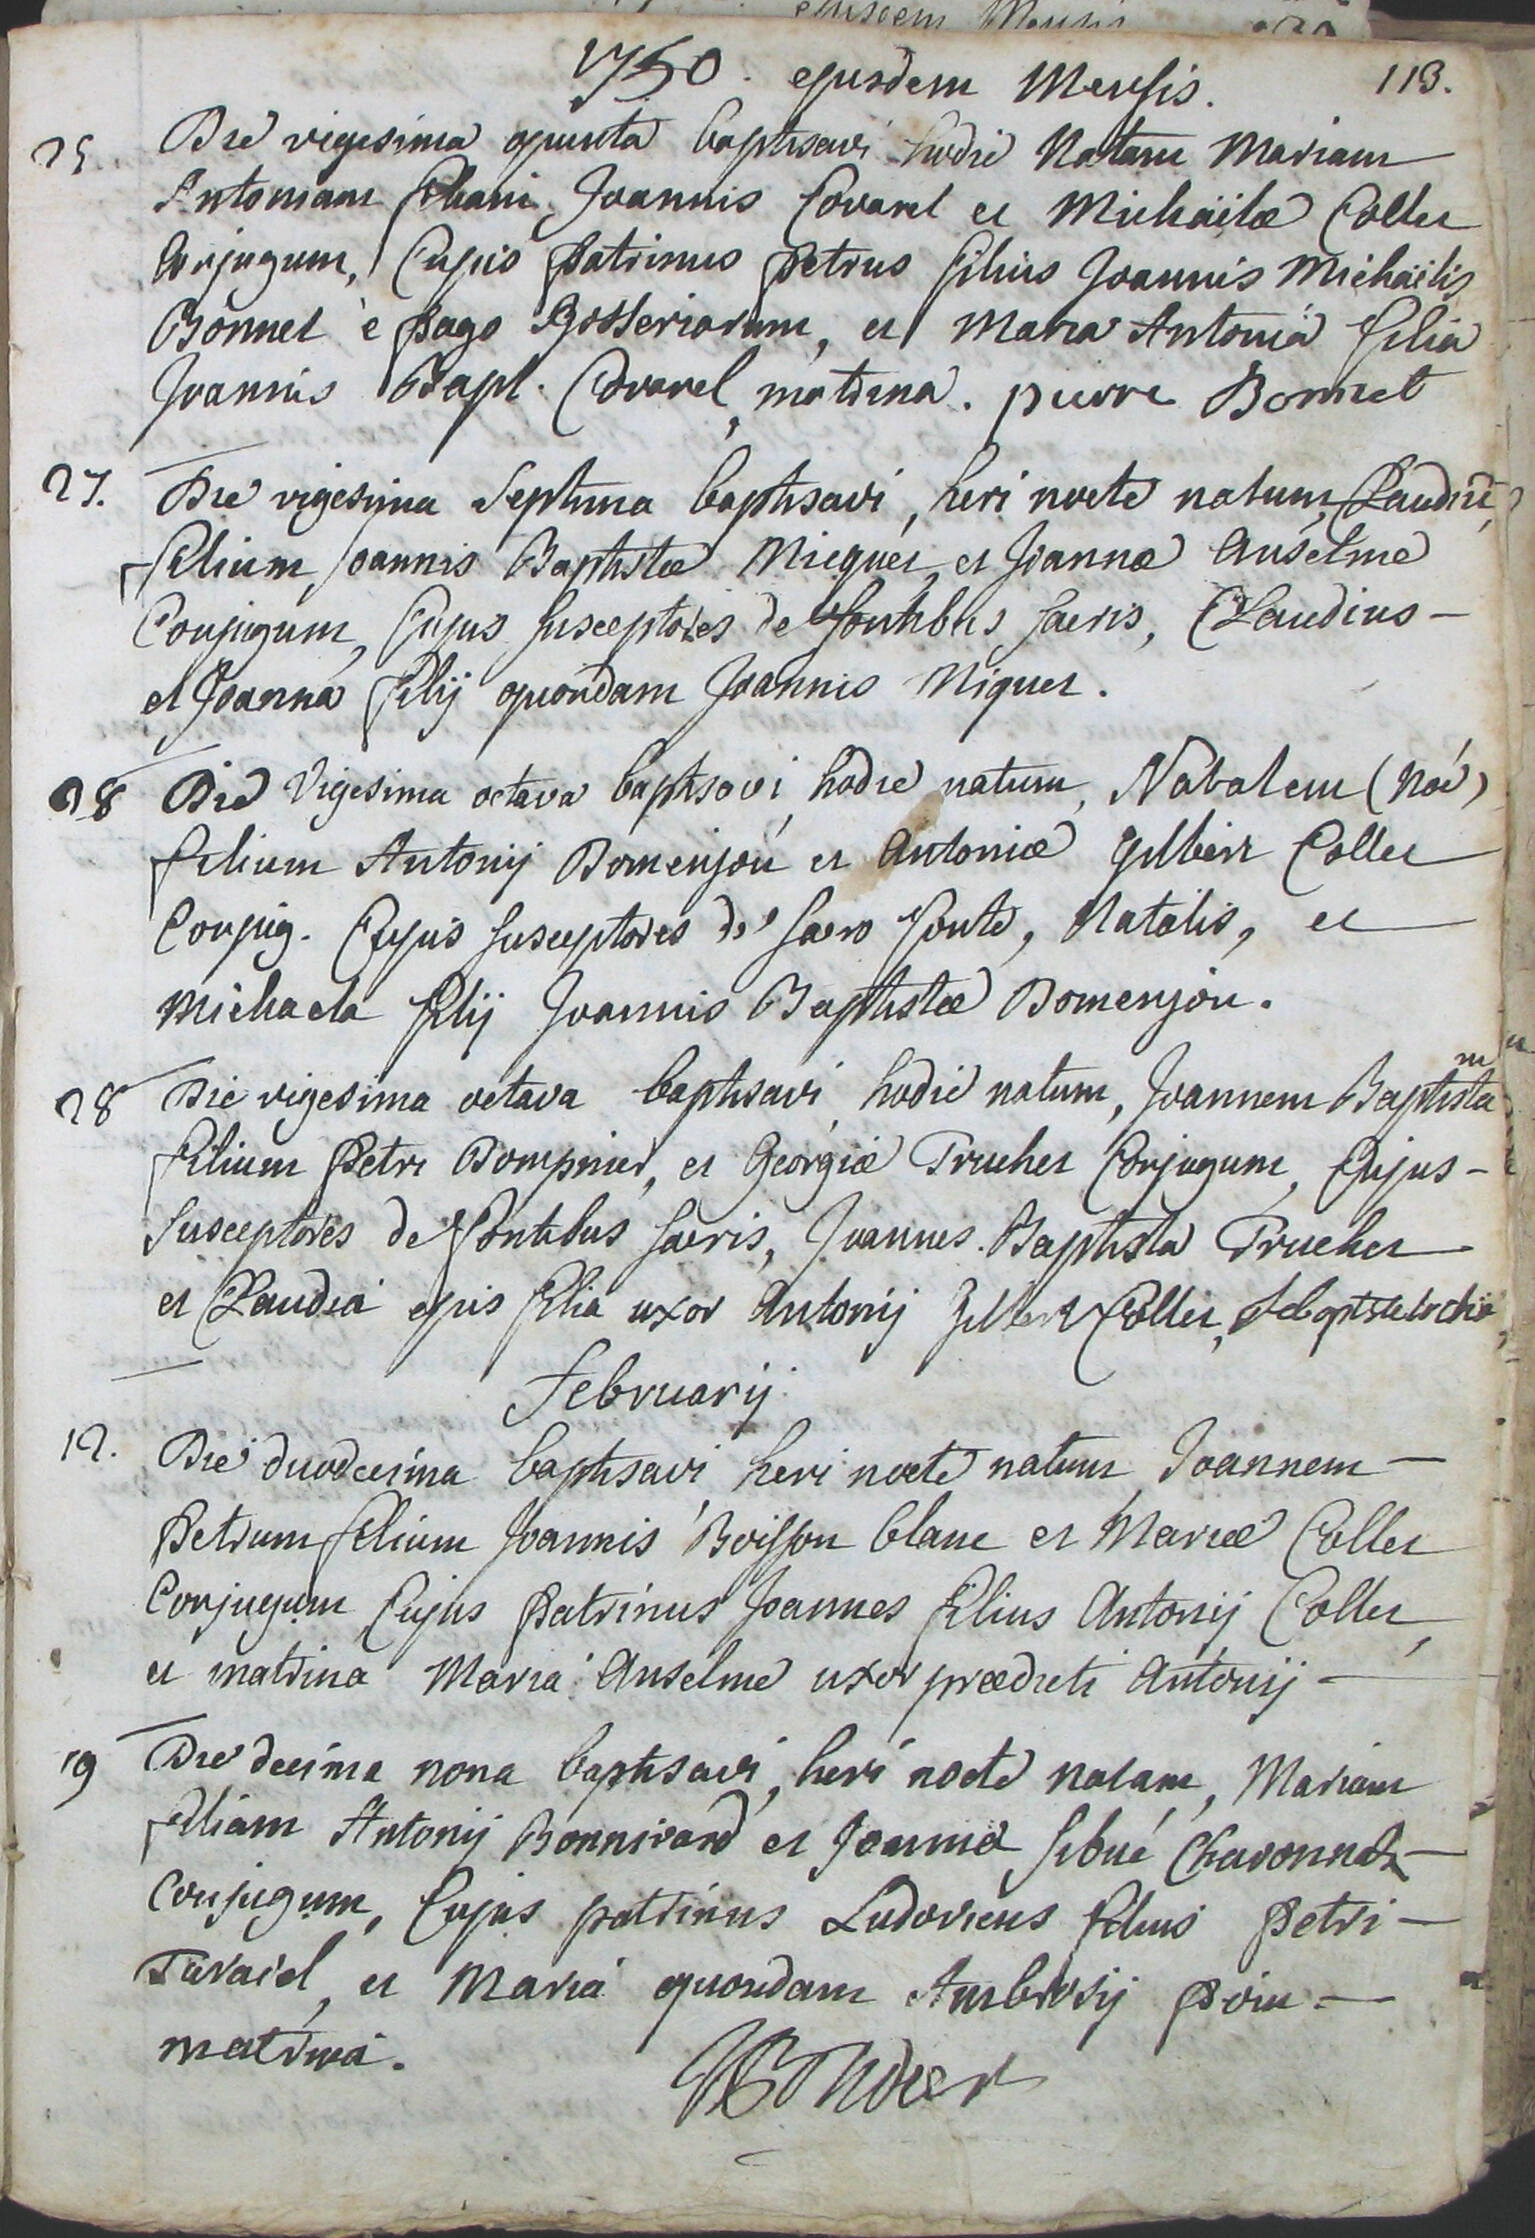 ejusdem Mensis
1750. ejusdem Mensis. 113.
25. Die vigesima quinta baptisavi hodie Natam Mariam
Antoniam filiam Joannis Covarel et Michaëlæ Collet
Conjugum, Cujus Patrinus Petrus filius Joannis Michaëlis
Bonnel è Pago, et Maria Antonia filia
Joannis Bapt. Covarel, matrina. pierre Bonnet
27. Die vigesima septima baptisavi, heri nocte natum, Claudiū,
filium Joannis Baptistæ Micquet, et Joannæ Anselme
Conjugum, Cujus susceptores de fontibus sacris, Claudius
et Joanna filij quondam Joannis Miquet.
28 Die Vigesima octava baptisavi, hodie natum, Natalem (Noé)
filium Antonij Domenjou et Antoniæ gilbert Collet
Conjug. Cujus susceptores de sacro fonte, Natalis, et
Michaela filij Joannis Baptistæ Domenjou.
28 Die vigesima octava baptisavi hodie natum, Joannem Baptistam
filium Petri Dompnier, et Georgiæ Truchet Conjugum, Cujus
susceptores de fontibus sacris, Joannes Baptista Truchet
et Claudia ejus filia uxor Antonij gilbert Collet,
Februarij
12. Die duodecima baptisavi heri nocte natum Joannem
Petrum filium Joannis Boisson blanc et Mariæ Collet
Conjugum Cujus Patrinus Joannes filius Antonij Collet,
et matrina Maria Anselme uxor prædicti Antonij
19 Die decima nona baptisavi, heri nocte natam, Mariam
filiam Antonij Bonnivard et Joannæ sibué Chavonnaz
Conjugum, Cujus patrinus Ludovicus filius Petri
Taravel, et Maria quondam Ambrosij
matrina.